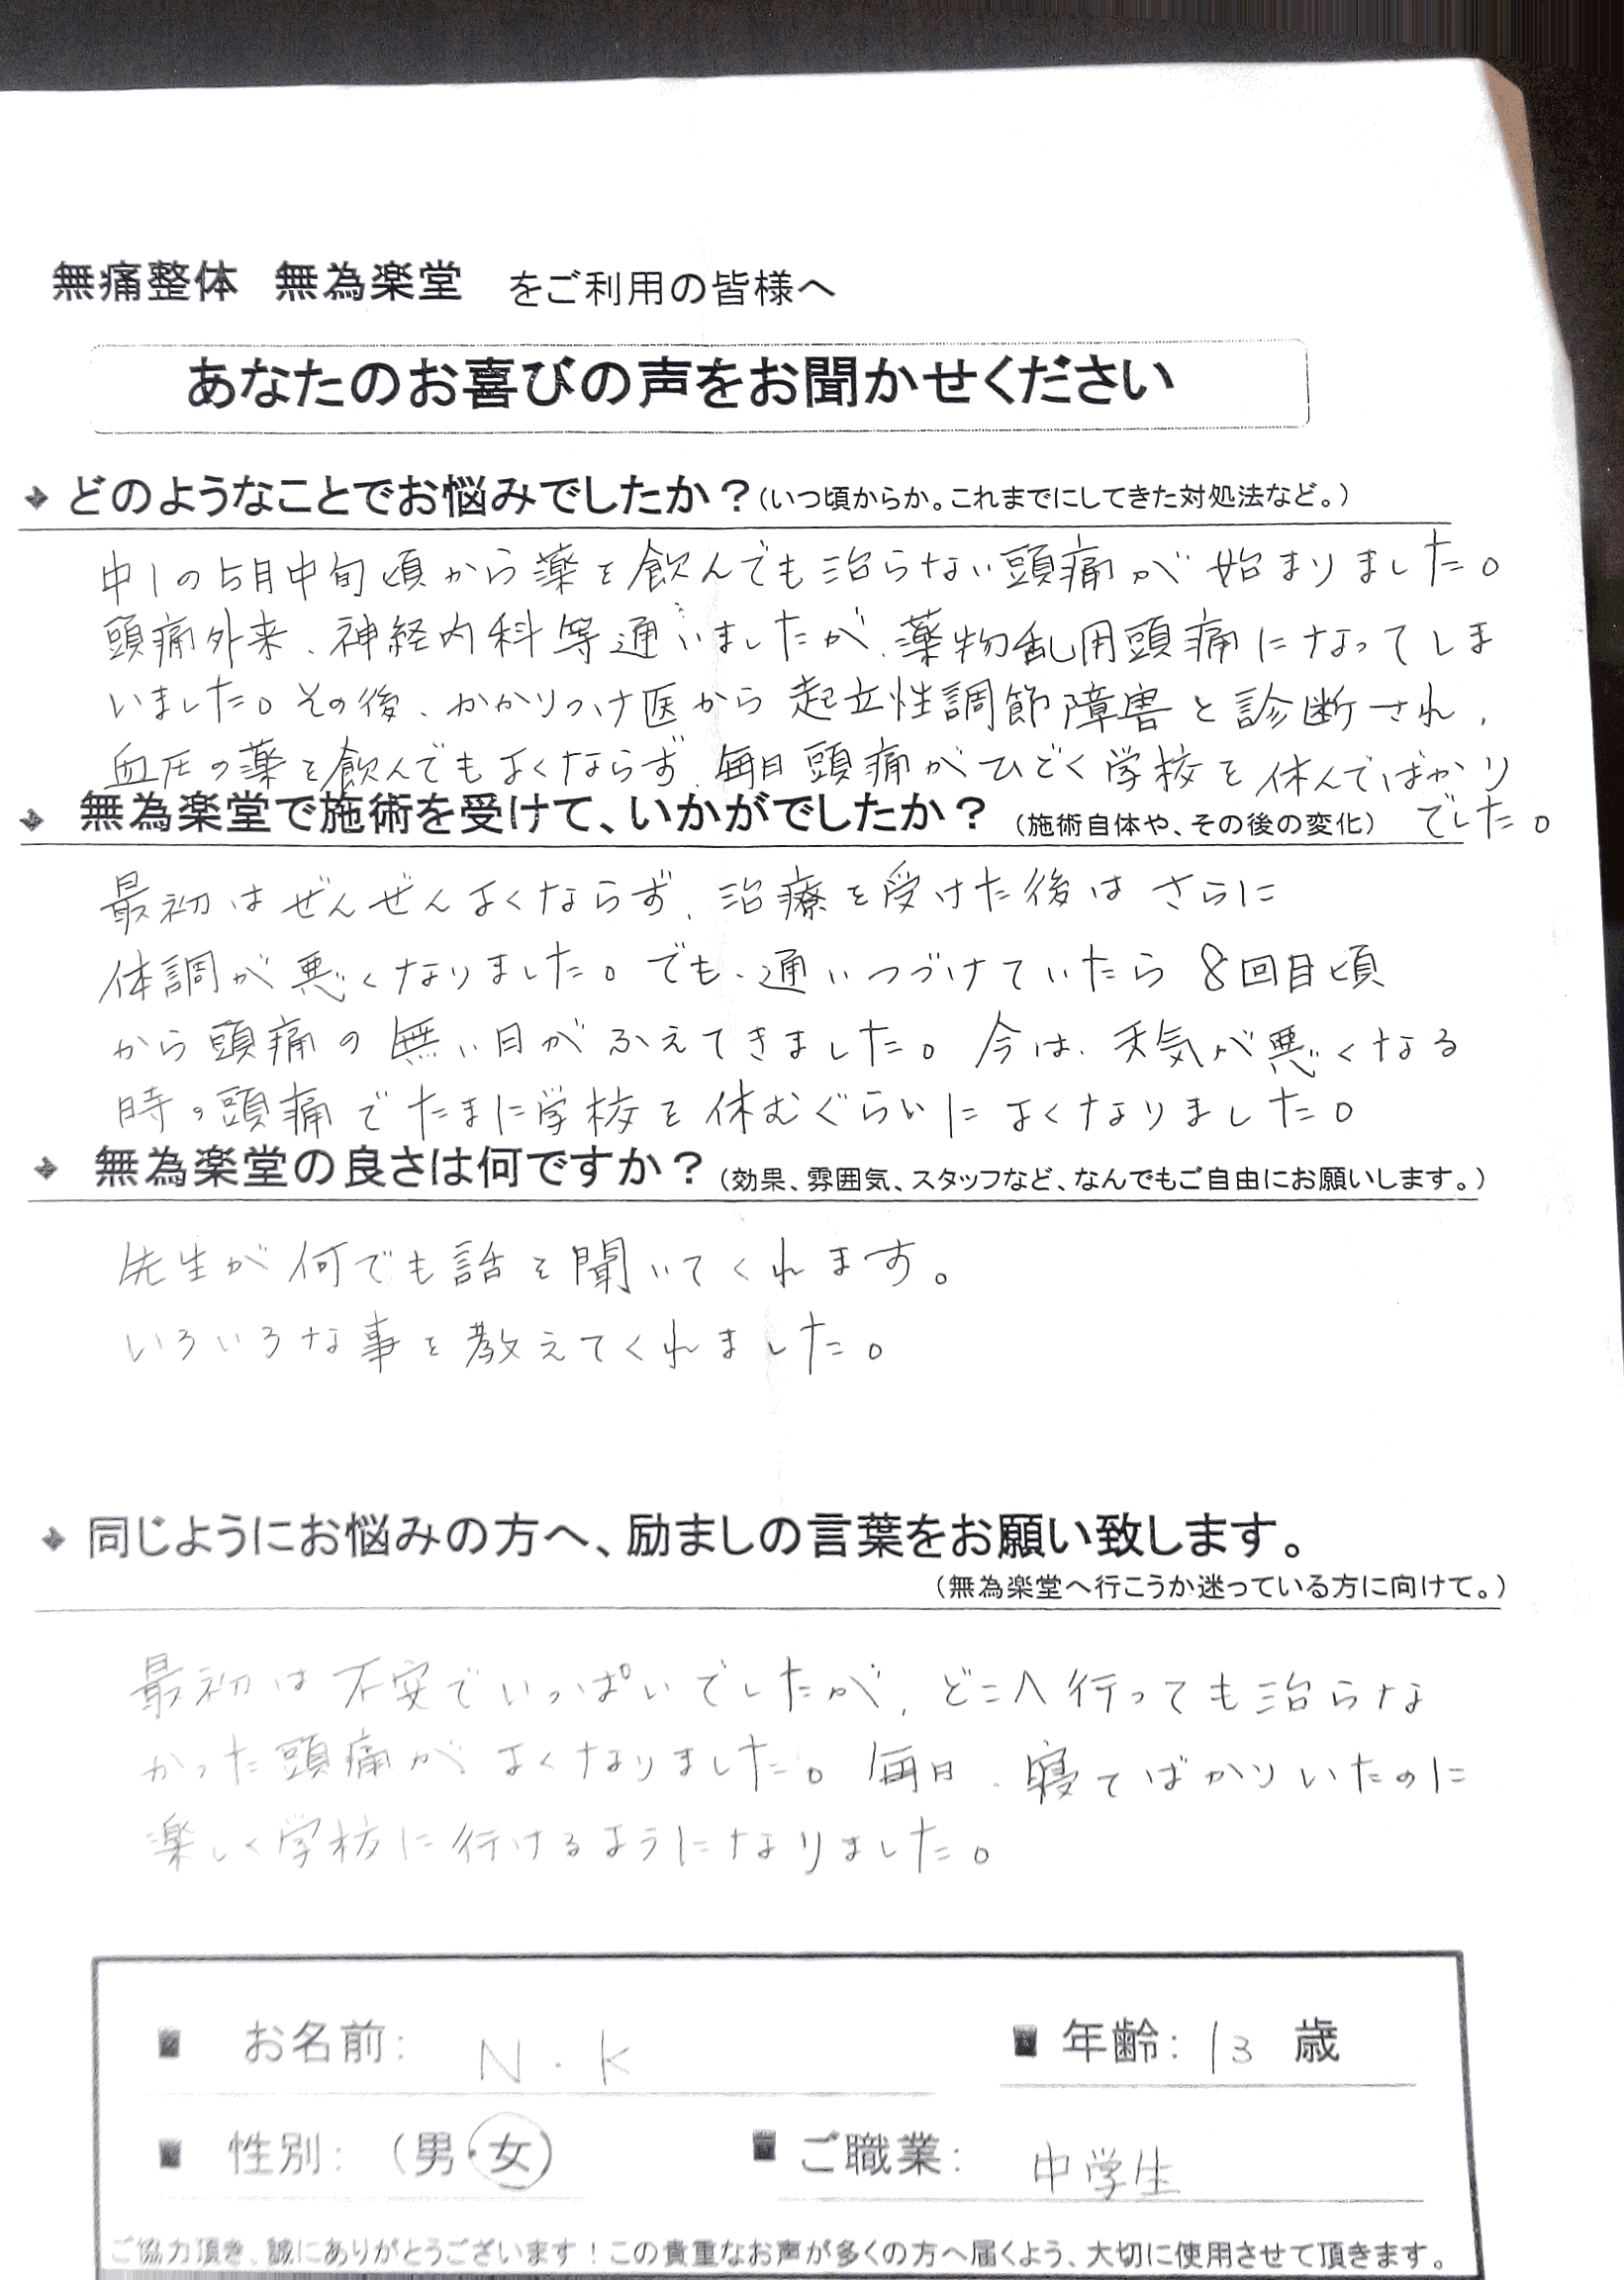 無痛整体　無為楽堂　をご利用の皆様へ
あなたのお喜びの声をお聞かせください
どのようなことでお悩みでしたか？（いつ頃からか。これまでにしてきた対処法など。）
中1の5月中旬頃から薬を飲んでも治らない頭痛が始まりました。
頭痛外来、神経内科等通いましたが、薬物乱用頭痛になってしま
いました。その後、かかりつけ医から起立性調節障害と診断され、
血圧の薬を飲んでもよくならず、毎日頭痛がひどく学校を休んでばかり
でした。
無為楽堂で施術を受けて、いかがでしたか？（施術自体や、その後の変化）
最初はぜんぜんよくならず、治療を受けた後はさらに
体調が悪くなりました。でも、通いつづけていたら8回目頃
から頭痛の無い日がふえてきました。今は、天気が悪くなる
時の頭痛でたまに学校を休むぐらいによくなりました。
無為楽堂の良さは何ですか？（効果、雰囲気、スタッフなど、なんでもご自由にお願いします。）
先生が何でも話を聞いてくれます。
いろいろな事を教えてくれました。
同じようにお悩みの方へ、励ましの言葉をお願い致します。
（無為楽堂へ行こうか迷っている方に向けて。）
最初は不安でいっぱいでしたが、どこへ行っても治らな
かった頭痛がよくなりました。毎日、寝てばかりいたのに
楽しく学校に行けるようになりました。
■ お名前： N・K ■ 年齢： 13 歳
■ 性別：（男・女） ■ ご職業： 中学生
ご協力頂き、誠にありがとうございます！この貴重なお声が多くの方へ届くよう、大切に使用させて頂きます。